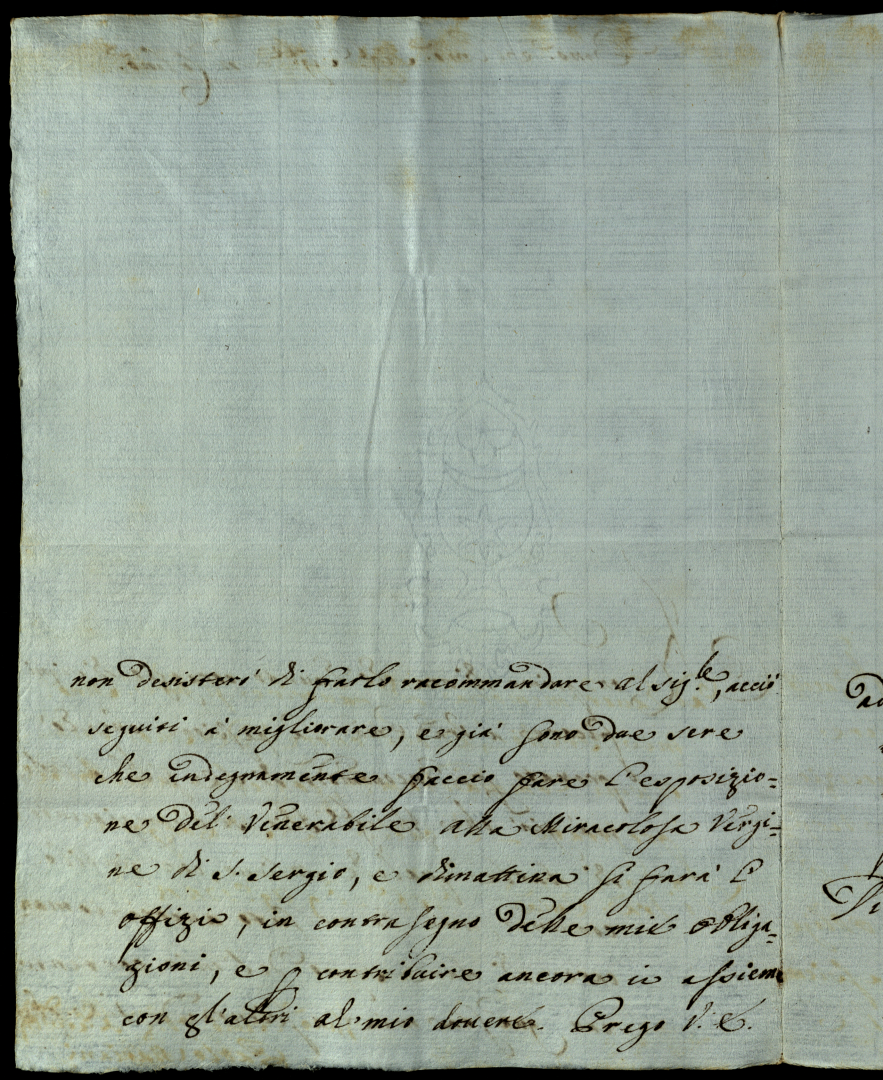 non desisterò di farlo racommandare al sig.le, acciò
seguiti à migliorare, e già sono due sere
che indegnamente faccio fare l'esposizio=
ne del Venerabile alla Miracolosa Vergi=
ne di S. Sergio, e dimattina si farà l'
offizio, in contrasegno delle mie obliga=
zioni, e p contribuire ancora io assieme
con gl'altri al mio dovere. Prego V. E.